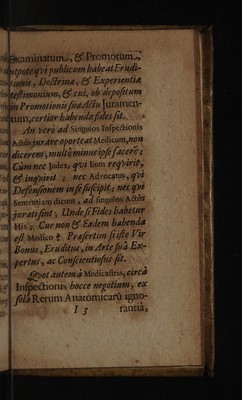 Examinatum, & Promotum,
utpote qvi publicum habeat Erudi-
tionis, Doctrinæ, & Experientiæ
testimonium, & cui, ob depositum
in Promotionis suæ Actu Juramen-
tum, certior habenda fides sit.
An verò ad Singulos Inspectionis
Actûs jurare oporteat Medicum, non
dicerem, multò minus ipse facere:
Cùm nec Judex, qvi Eum reqvirit,
& inqvirit; nec Advocatus, qvi
Defensionem in se suscipit; nec qvi
Sententiam dicunt, ad singulos Actûs
jurati sint; Unde si Fides habetur
His; Cur non & Eadem habenda
est Medico? Præsertim si iste Vir
Bonus, Eruditus, in Arte suâ Ex-
pertus, ac Conscientiosus sit.
Qvot autem à Medicastris, circà
Inspectionis hocce negotium, ex
solâ Rerum Anatomicarũ igno-
I 3 rantiâ,